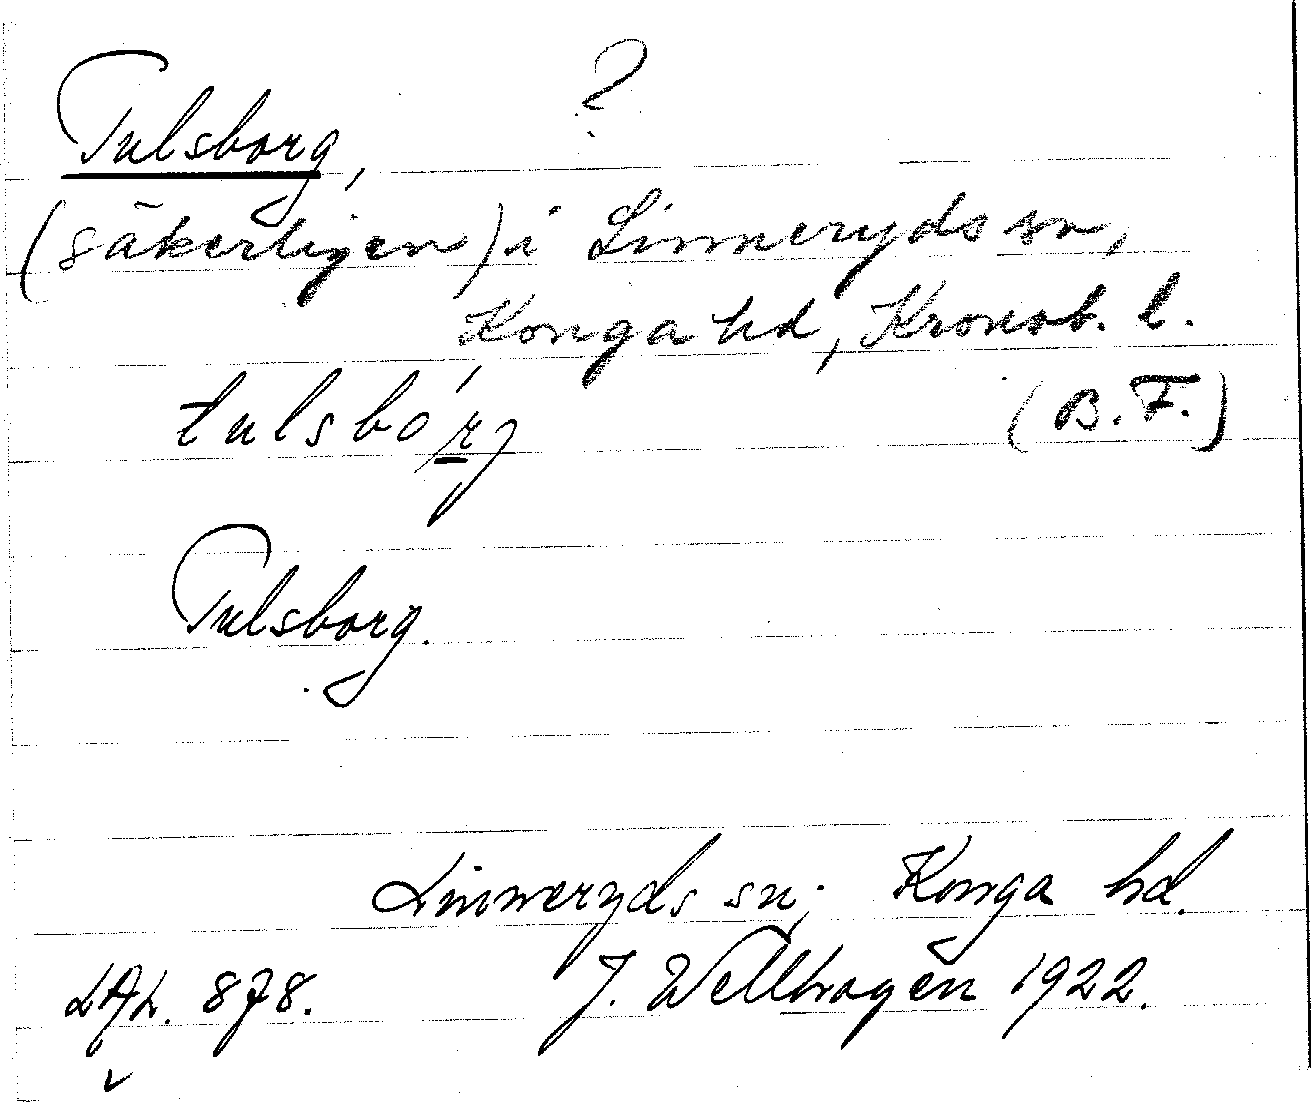 Tulsborg, ?
(säkerligen) i Linneryds sn,
Konga hd, Kronob. l.
tulsbórj (B.F.)
Tulsborg.
Linneryds sn; Konga hd.
LAL. 878. J. Wellhagen 1922.